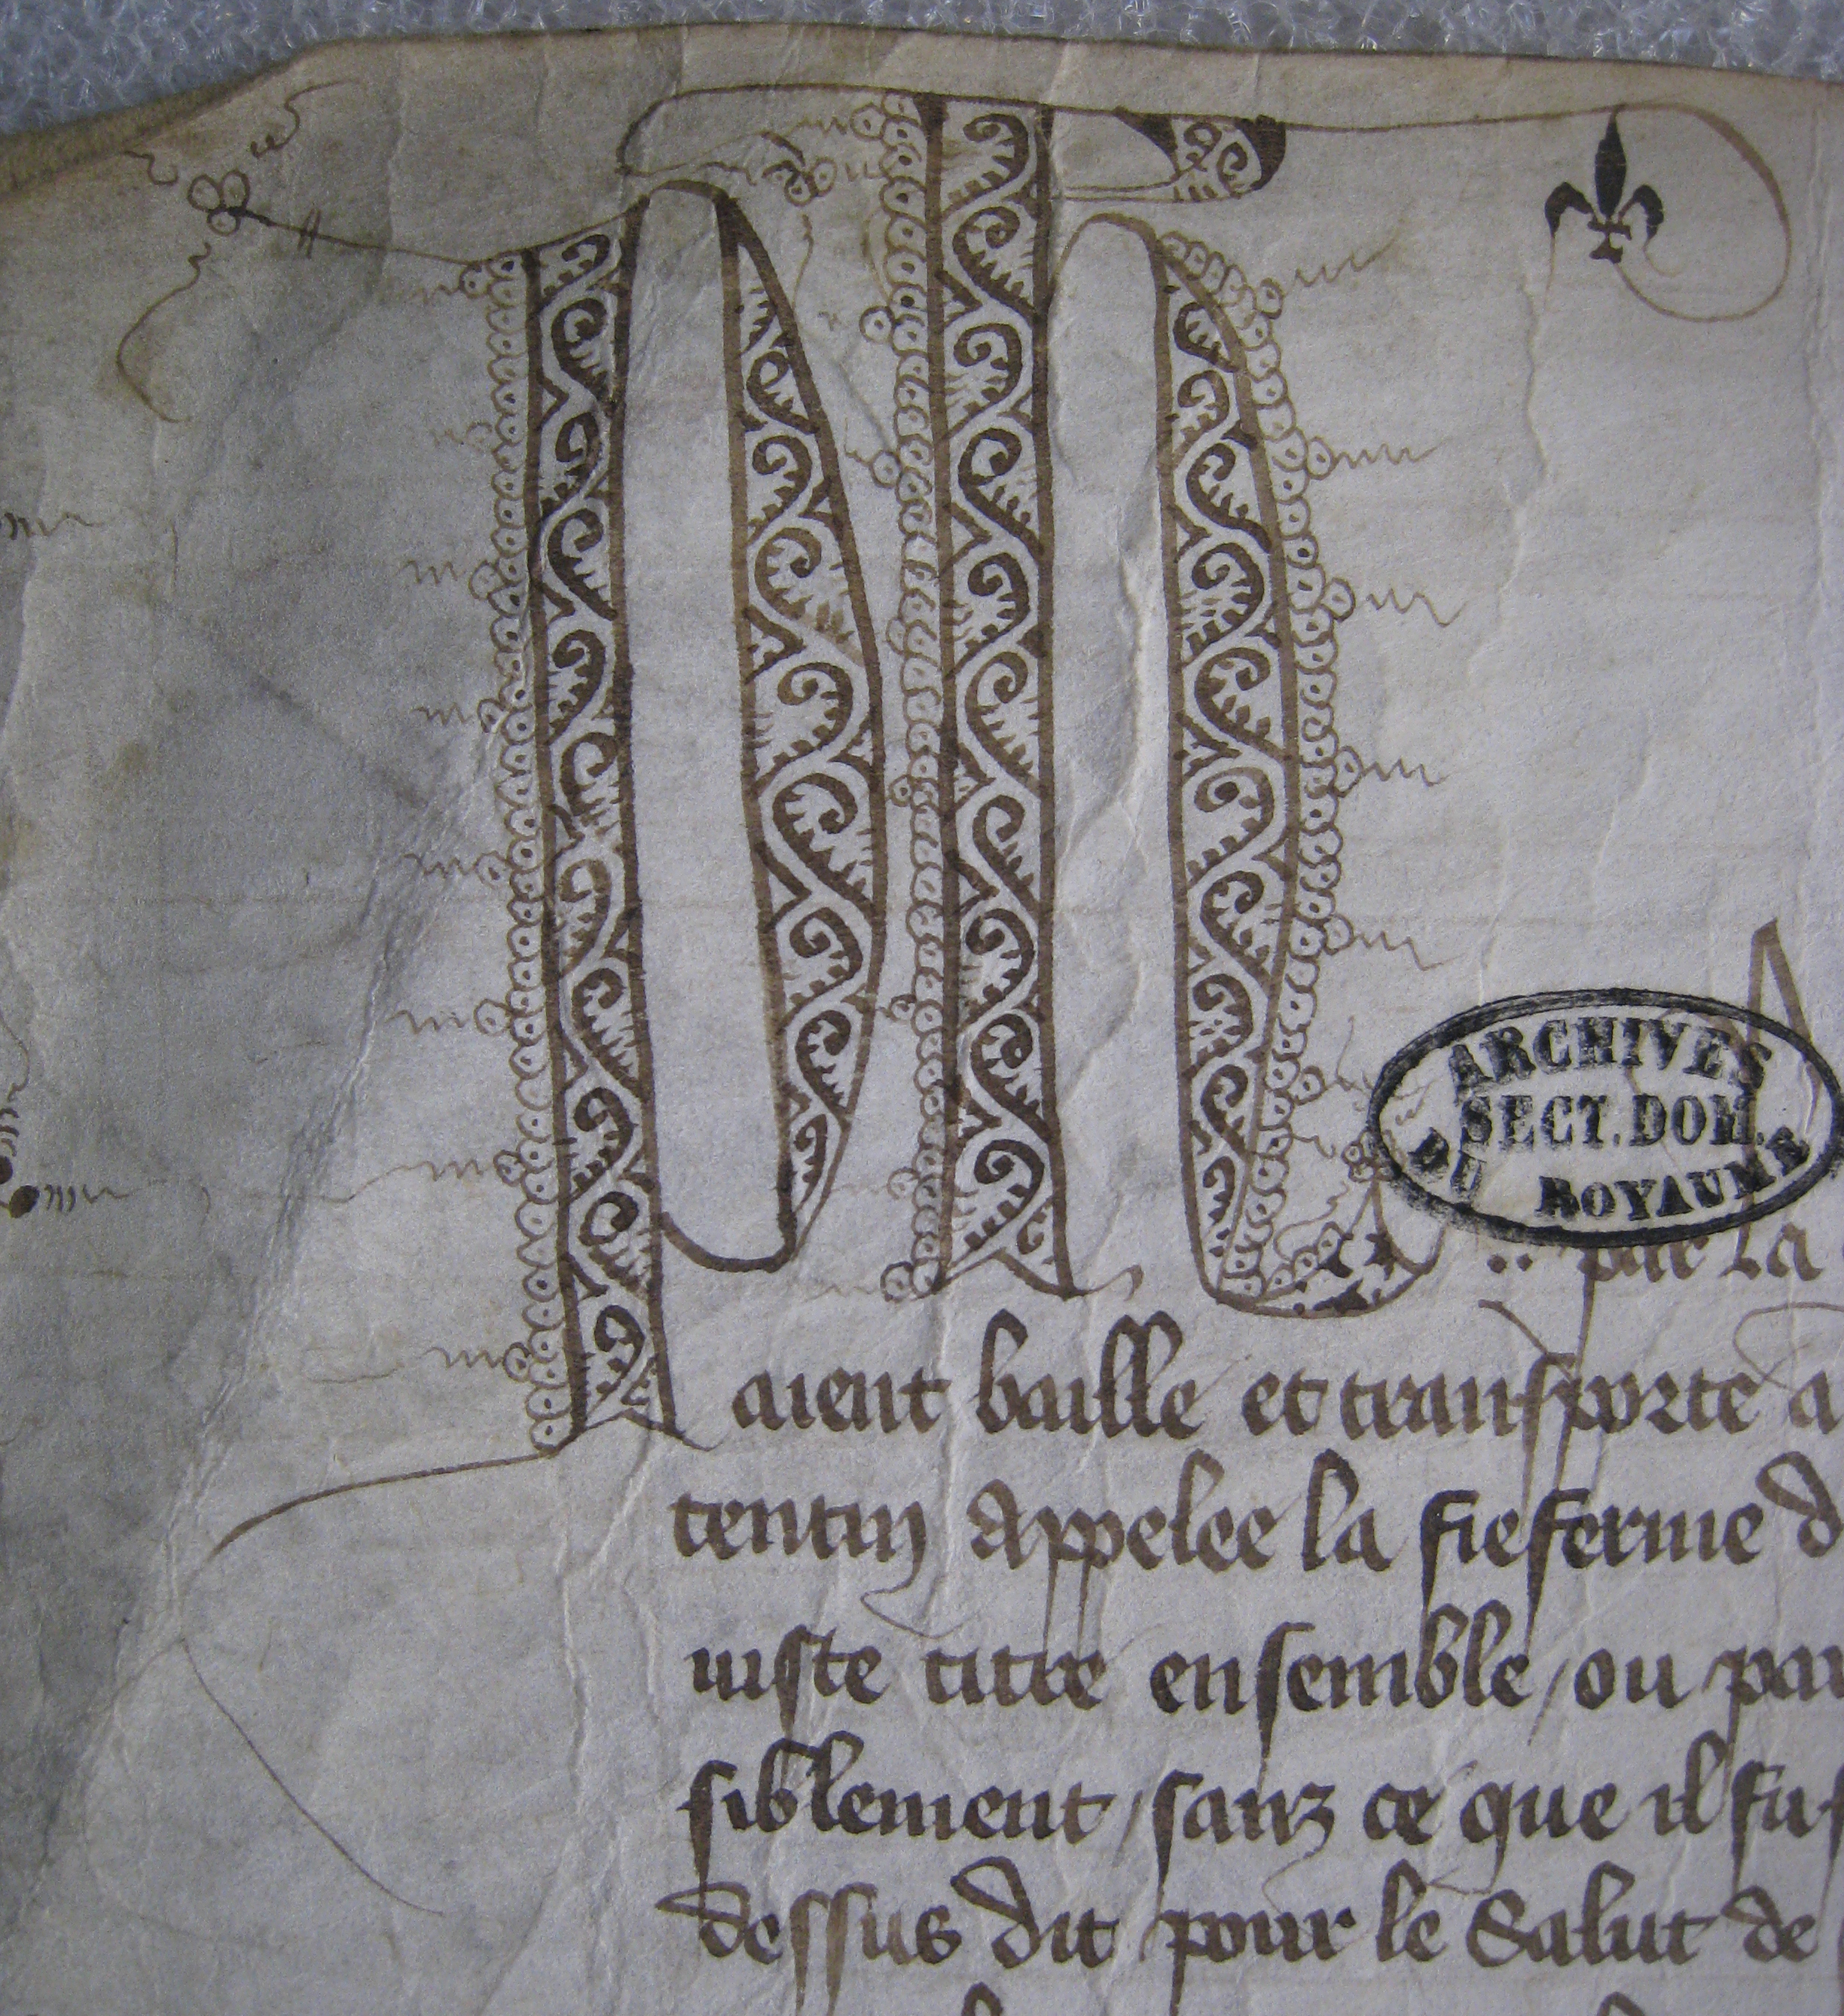 ARCHIVES
SECT. DOM.
DU ROYAUME
par la
aient baille et transporte a
tentin appelee la fieferme d
iuste titre ensemble / ou par
siblement / sanz ce que il fus
dessus dit pour le Salut de